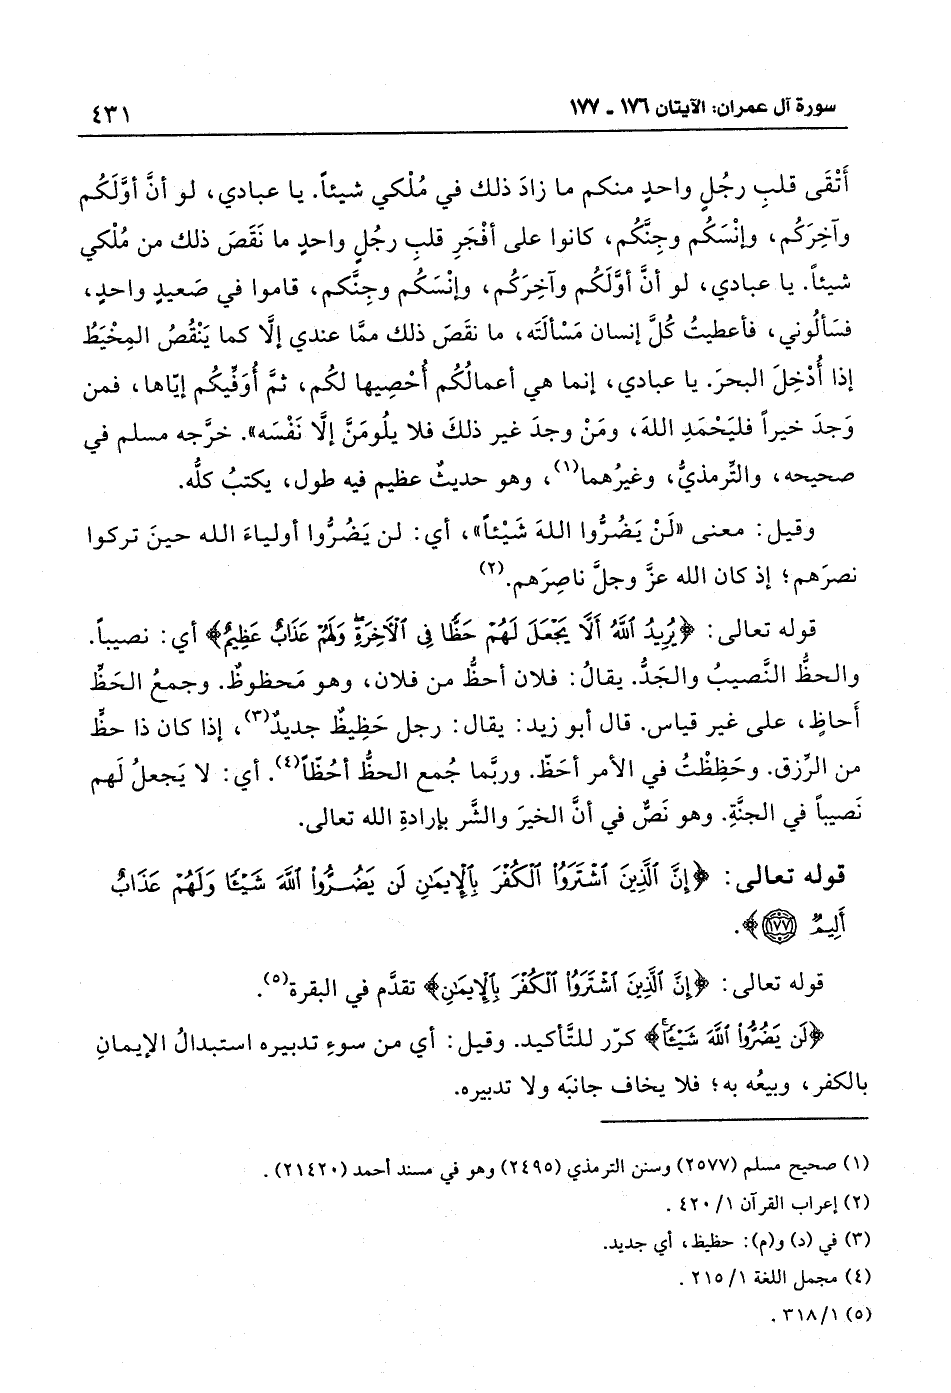 سورة آل عمران: الآيتان ١٧٦ - ١٧٧
٤٣١
أَتْقَى قلبِ رجُلٍ واحدٍ منكم ما زادَ ذلك في مُلْكي شيئاً. يا عبادي، لو أنَّ أوَّلَكُم
وآخِرَكُم، وإنْسَكُم وجِنَّكُم، كانوا على أفْجَرِ قلبِ رجُلٍ واحدٍ ما نَقَصَ ذلك من مُلْكي
شيئاً. يا عبادي، لو أنَّ أوَّلَكُم وآخِرَكُم، وإنْسَكُم وجِنَّكم، قاموا في صَعيدٍ واحدٍ،
فسَألُوني، فأعطيتُ كُلَّ إنسان مَسْألَته، ما نقَصَ ذلك ممَّا عندي إلَّا كما يَنْقُصُ المِخْيَطُ
إذا أُدْخِلَ البحرَ. يا عبادي، إنما هي أعمالُكُم أُحْصِيها لكُم، ثمَّ أُوَفِّيكُم إيَّاها، فمن
وَجدَ خيراً فليَحْمَدِ اللهَ، ومَنْ وجدَ غير ذلكَ فلا يلُومَنَّ إلَّا نَفْسَه». خرَّجه مسلم في
صحيحه، والتِّرمذيُّ، وغيرُهما(١)، وهو حديثٌ عظيم فيه طول، يكتبُ كلُّه.
وقيل: معنى «لَنْ يَضُرُّوا اللهَ شَيْئاً»، أي: لن يَضُرُّوا أولياءَ الله حينَ تركوا
نصرَهم؛ إذ كان الله عزَّ وجلَّ ناصِرَهم.(٢)
قوله تعالى: ﴿يُرِيدُ ٱللَّهُ أَلَّا يَجْعَلَ لَهُمْ حَظًّا فِى ٱلْآخِرَةِۖ وَلَهُمْ عَذَابٌ عَظِيمٌ﴾ أي: نصيباً.
والحظُّ النَّصيبُ والجَدُّ. يقالُ: فلان أحظُّ من فلان، وهو مَحظوظٌ. وجمعُ الحَظِّ
أَحاظٍ، على غير قياس. قال أبو زيد: يقال: رجل حَظِيظٌ جديدٌ(٣)، إذا كان ذا حظٍّ
من الرِّزق. وحَظِظْتُ في الأمر أحَظّ. وربَّما جُمع الحظُّ أحُظّاً(٤). أي: لا يَجعلُ لَهم
نَصيباً في الجنَّةِ. وهو نَصٌّ في أنَّ الخيرَ والشَّر بإرادةِ الله تعالى.
قوله تعالى: ﴿إِنَّ ٱلَّذِينَ ٱشْتَرَوُا۟ ٱلْكُفْرَ بِٱلْإِيمَٰنِ لَن يَضُرُّوا۟ ٱللَّهَ شَيْـًٔا وَلَهُمْ عَذَابٌ
أَلِيمٌ ١٧٧﴾.
قوله تعالى: ﴿إِنَّ ٱلَّذِينَ ٱشْتَرَوُا۟ ٱلْكُفْرَ بِٱلْإِيمَٰنِ﴾ تقدَّم في البقرة(٥).
﴿لَن يَضُرُّوا۟ ٱللَّهَ شَيْـًٔا﴾ كرّر للتَّأكيد. وقيل: أي من سوءِ تدبيره استبدالُ الإيمانِ
بالكفر، وبيعُه به؛ فلا يخاف جانبَه ولا تدبيره.
(١) صحيح مسلم (٢٥٧٧) وسنن الترمذي (٢٤٩٥) وهو في مسند أحمد (٢١٤٢٠).
(٢) إعراب القرآن ١/ ٤٢٠.
(٣) في (د) و(م): حظيظ، أي جديد.
(٤) مجمل اللغة ١/ ٢١٥.
(٥) ١/ ٣١٨.